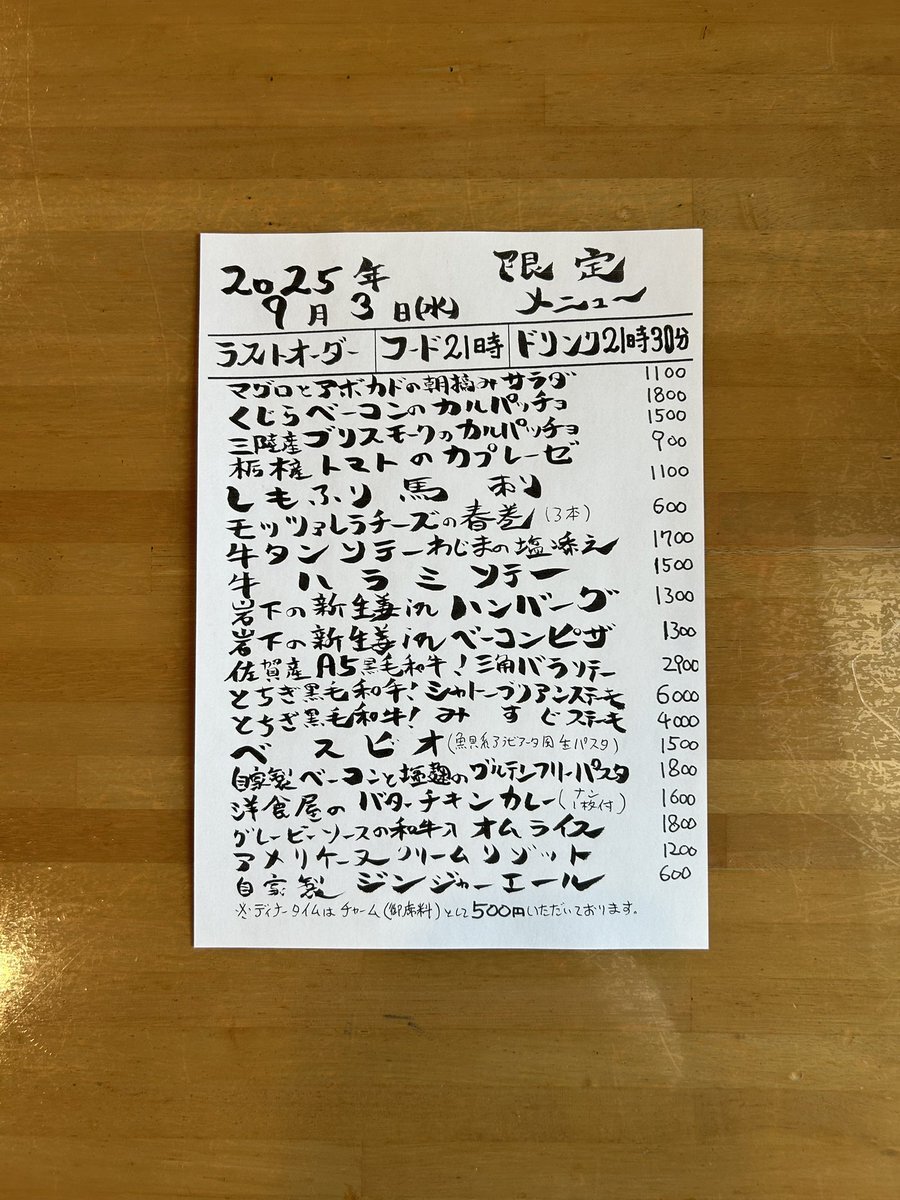 2025年 限定
9月3日(水) メニュー
ラストオーダー フード21時 ドリンク21時30分
マグロとアボカドの朝摘みサラダ 1100
くじらベーコンのカルパッチョ 1800
三陸産ブリスモークのカルパッチョ 1500
栃木産トマトのカプレーゼ 900
しもふり馬刺 1100
モッツァレラチーズの春巻(3本) 600
牛タンソテーわじまの塩添え 1700
牛ハラミソテー 1500
岩下の新生姜inハンバーグ 1300
岩下の新生姜inベーコンピザ 1300
佐賀産A5黒毛和牛!三角バラソテー 2900
とちぎ黒毛和牛!シャトーブリアンステーキ 6000
とちぎ黒毛和牛!みすじステーキ 4000
ベスビオ(魚貝系アラビアータ風生パスタ) 1500
自家製ベーコンと塩麹のグルテンフリーパスタ 1800
洋食屋のバターチキンカレー(ナン1枚付) 1600
グレービーソースの和牛入オムライス 1800
アメリケーヌクリームリゾット 1200
自家製ジンジャーエール 600
※ディナータイムはチャーム(御席料)として500円いただいております。